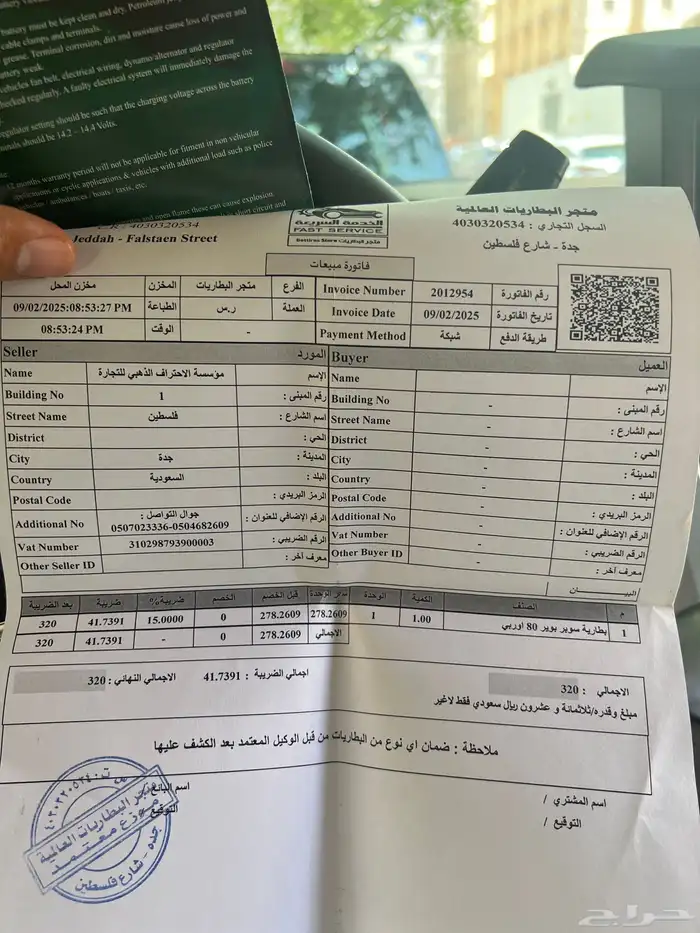 battery must be kept clean and dry.
cable clamps and terminals.
grease. Terminal corrosion, dirt and moisture cause loss of power and
battery weak.
vehicles fan belt, electrical wiring, dynamo/alternator and regulator
checked regularly. A faulty electrical system will immediately damage the
regulator setting should be such that the charging voltage across the battery
should be 14.2 - 14.4 Volts.
12 months warranty period will not be applicable for fitment in non vehicular
applications or cyclic applications & vehicles with additional load such as police
vehicles / ambulances / boats / taxis, etc.
and open flame these can cause explosion
short circuit and
4030320534
Jeddah - Falstaen Street
الخدمة السريعة
FAST SERVICE
متجر البطاريات العالية
السجل التجاري : 4030320534
جدة - شارع فلسطين
فاتورة مبيعات
مخزن المحل المخزن متجر البطاريات الفرع
09/02/2025:08:53:27 PM الطباعة ر.س العملة
08:53:24 PM الوقت -
Invoice Number 2012954 رقم الفاتورة
Invoice Date 09/02/2025 تاريخ الفاتورة
Payment Method شبكة طريقة الدفع
Seller المورد
Name مؤسسة الاحتراف الذهبي للتجارة الإسم
Building No 1 رقم المبنى :
Street Name فلسطين اسم الشارع :
District الحي :
City جدة المدينة :
Country السعودية البلد :
Postal Code الرمز البريدي :
Additional No جوال التواصل : 0507023336-0504682609 الرقم الإضافي للعنوان :
Vat Number 310298793900003 الرقم الضريبي :
Other Seller ID معرف آخر :
Buyer العميل
Name الإسم
Building No - رقم المبنى :
Street Name - اسم الشارع :
District - الحي :
City - المدينة :
Country - البلد :
Postal Code - الرمز البريدي :
Additional No - الرقم الإضافي للعنوان :
Vat Number - الرقم الضريبي :
Other Buyer ID - معرف آخر :
البيـــــان
م الصنف الوحدة الكمية سعر الوحدة قبل الخصم الخصم ضريبة% ضريبة بعد الضريبة
1 بطارية سوبر بوير 80 اوربي 1.00 1 278.2609 278.2609 0 15.0000 41.7391 320
الاجمالي 278.2609 0 - 41.7391 320
الاجمالي : 320 اجمالي الضريبة : 41.7391 الاجمالي النهائي : 320
مبلغ وقدره/ثلاثمائة و عشرون ريال سعودي فقط لاغير
ملاحظة : ضمان اي نوع من البطاريات من قبل الوكيل المعتمد بعد الكشف عليها
اسم المشتري /
التوقيع /
اسم البائع /
التوقيع /
ت: ٤٠٣٠٣٢٠٥٣٤
متجر البطاريات العالية
موزع معتمد
جدة - شارع فلسطين
حراج